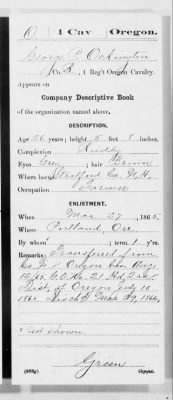 O | 1 Cav | Oregon.
George P.
Co. B, 1 Reg't Oregon Cavalry.
Appears on
Company Descriptive Book
of the organization named above.
DESCRIPTION.
Age 26 years; height 5 feet 8 inches.
Complexion Ruddy
Eyes Grey; hair Brown
Where born Strafford Co. N.H.
Occupation Farmer
ENLISTMENT.
When Mar 27, 1865.
Where Portland, Ore
By whom * ; term 1 y'rs.
Remarks: Transferred from
Co. Oregon
G.O. No. 21 Hd. Qrs.
Dist. of Oregon July 10
1865.
* Not shown.
Green
Copyist.